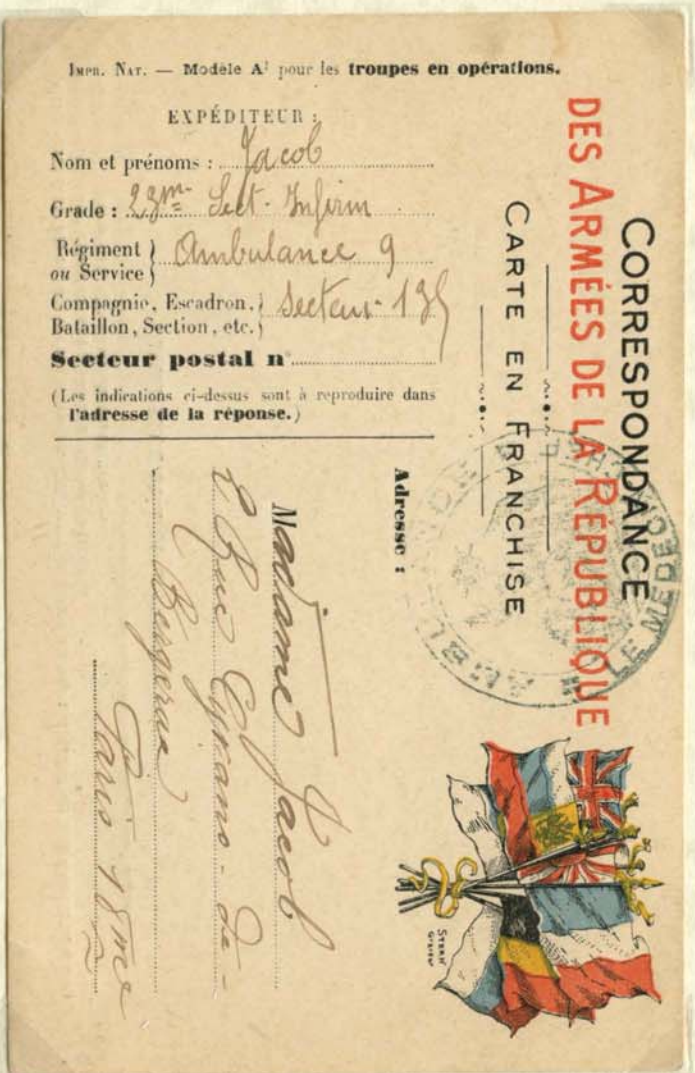 Impr. Nat. — Modèle A¹ pour les troupes en opérations.
EXPÉDITEUR :
Nom et prénoms : Jacob
Grade : 23me Sect. Infirm
Régiment ou Service } Ambulance 9
Compagnie, Escadron, Bataillon, Section, etc. } Secteur 135
Secteur postal n°
(Les indications ci-dessus sont à reproduire dans
l'adresse de la réponse.)
CORRESPONDANCE
DES ARMÉES DE LA RÉPUBLIQUE
CARTE EN FRANCHISE
LE MÉDECIN CHEF
STERN
Adresse :
Madame Jacob
Rue Cyrano-de-
Bergerac
Paris 18me